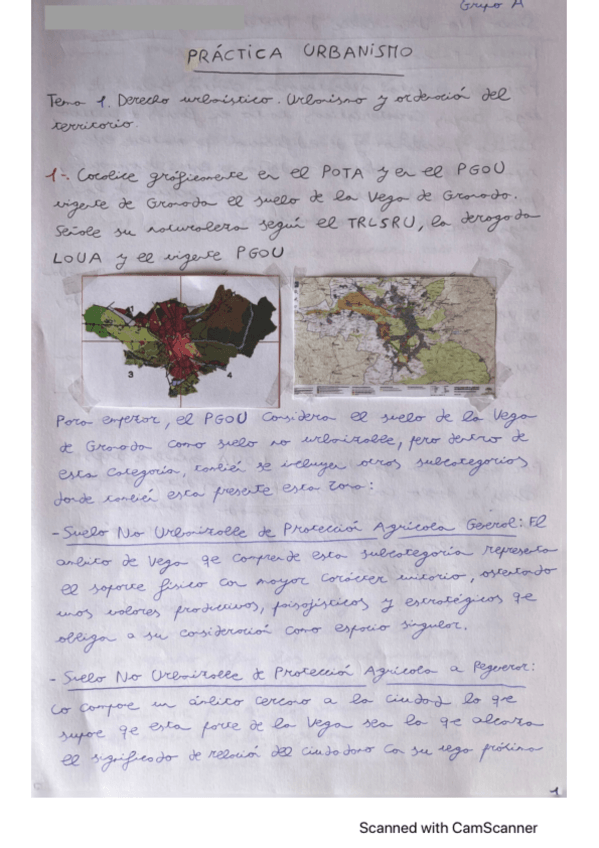 Grupo A
PRÁCTICA URBANISMO
Tema 1. Derecho urbanístico. Urbanismo y ordenación del
territorio.
1-. Localice gráficamente en el POTA y en el PGOU
vigente de Granada el suelo de la Vega de Granada.
Señale su naturaleza según el TRLSRU, la derogada
LOUA y el vigente PGOU
3
4
Para empezar, el PGOU considera el suelo de la Vega
de Granada como suelo no urbanizable, pero dentro de
esta categoría, también se incluyen otras subcategorías
donde también esta presente esta zona:
- Suelo No Urbanizable de Protección Agrícola General: El
ámbito de Vega qe comprende esta subcategoría representa
el soporte físico con mayor carácter unitario, ostentando
unos valores productivos, paisajísticos y estratégicos qe
obliga a su consideración como espacio singular.
- Suelo No Urbanizable de Protección Agrícola a Regenerar:
Lo compone un ámbito cercano a la ciudad lo que
supone qe esta parte de la Vega sea la qe alcanza
el significado de relación del ciudadano con su vega próxima
1
Scanned with CamScanner